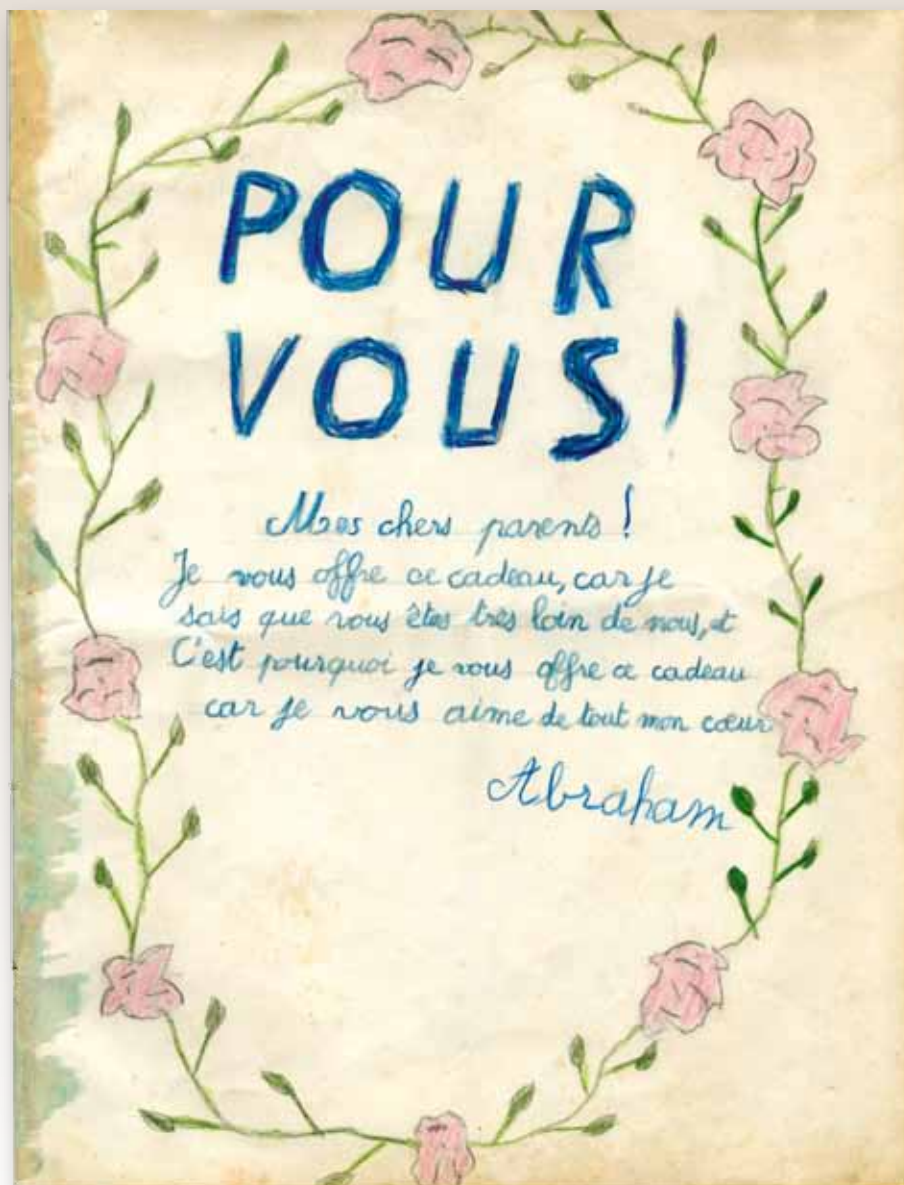 POUR
VOUS!
Mes chers parents !
Je vous offre ce cadeau, car je
sais que vous êtes très loin de nous, et
C'est pourquoi je vous offre ce cadeau
car je vous aime de tout mon cœur
Abraham